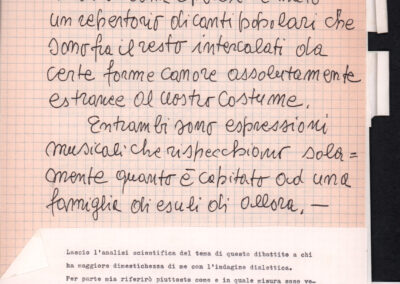 un repertorio di canti popolari che
sono fra il resto intercalati da
certe forme canore assolutamente
estranee al nostro costume.
Entrambi sono espressioni
musicali che rispecchiono sola=
mente quanto è capitato ad una
famiglia di esuli di allora. —
Lascio l'analisi scientifica del tema di questo dibattito a chi
ha maggiore dimestichezza di me con l'indagine dialettica.
Per parte mia riferirò piuttosto come e in quale misura esse ve-